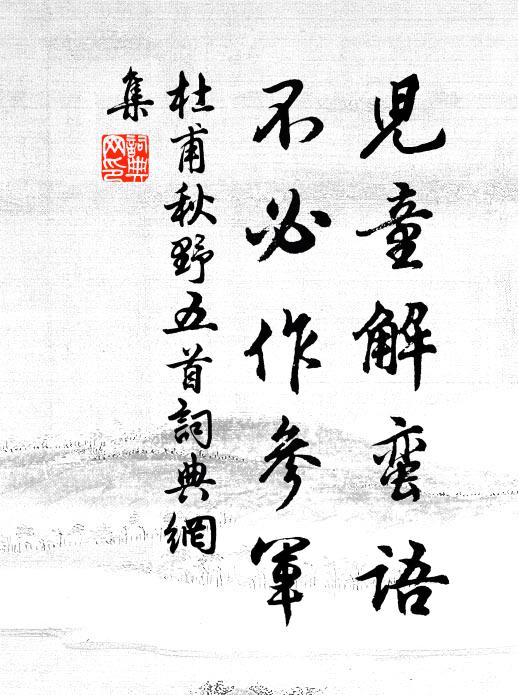 兒童解蠻語
不必作參軍
杜甫秋野五首詞典網
集
詞典
网印